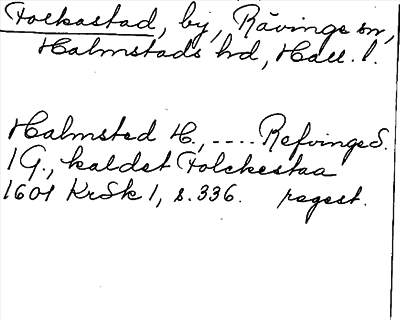 Folkastad, by, Rävinge sn,
Halmstads hd, Hall. l.
Halmsted H., .... RefvingeS.
1 G., kaldet Folckestaa
1601 KrSk 1, s. 336. regest.